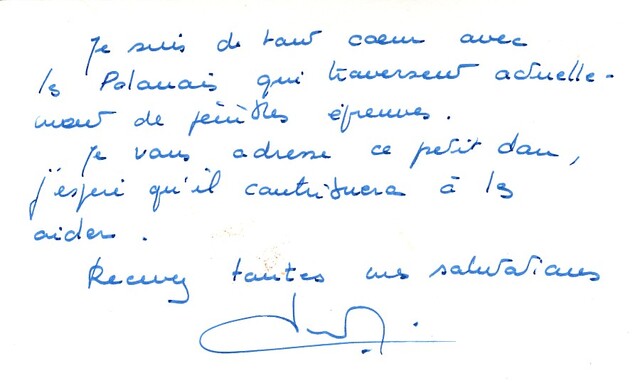 Je suis de tout coeur avec
les Polonais qui traversent actuelle-
ment de pénibles épreuves.
Je vous adresse ce petit don,
j'espère qu'il contribuera à les
aider.
Recevez toutes mes salutations